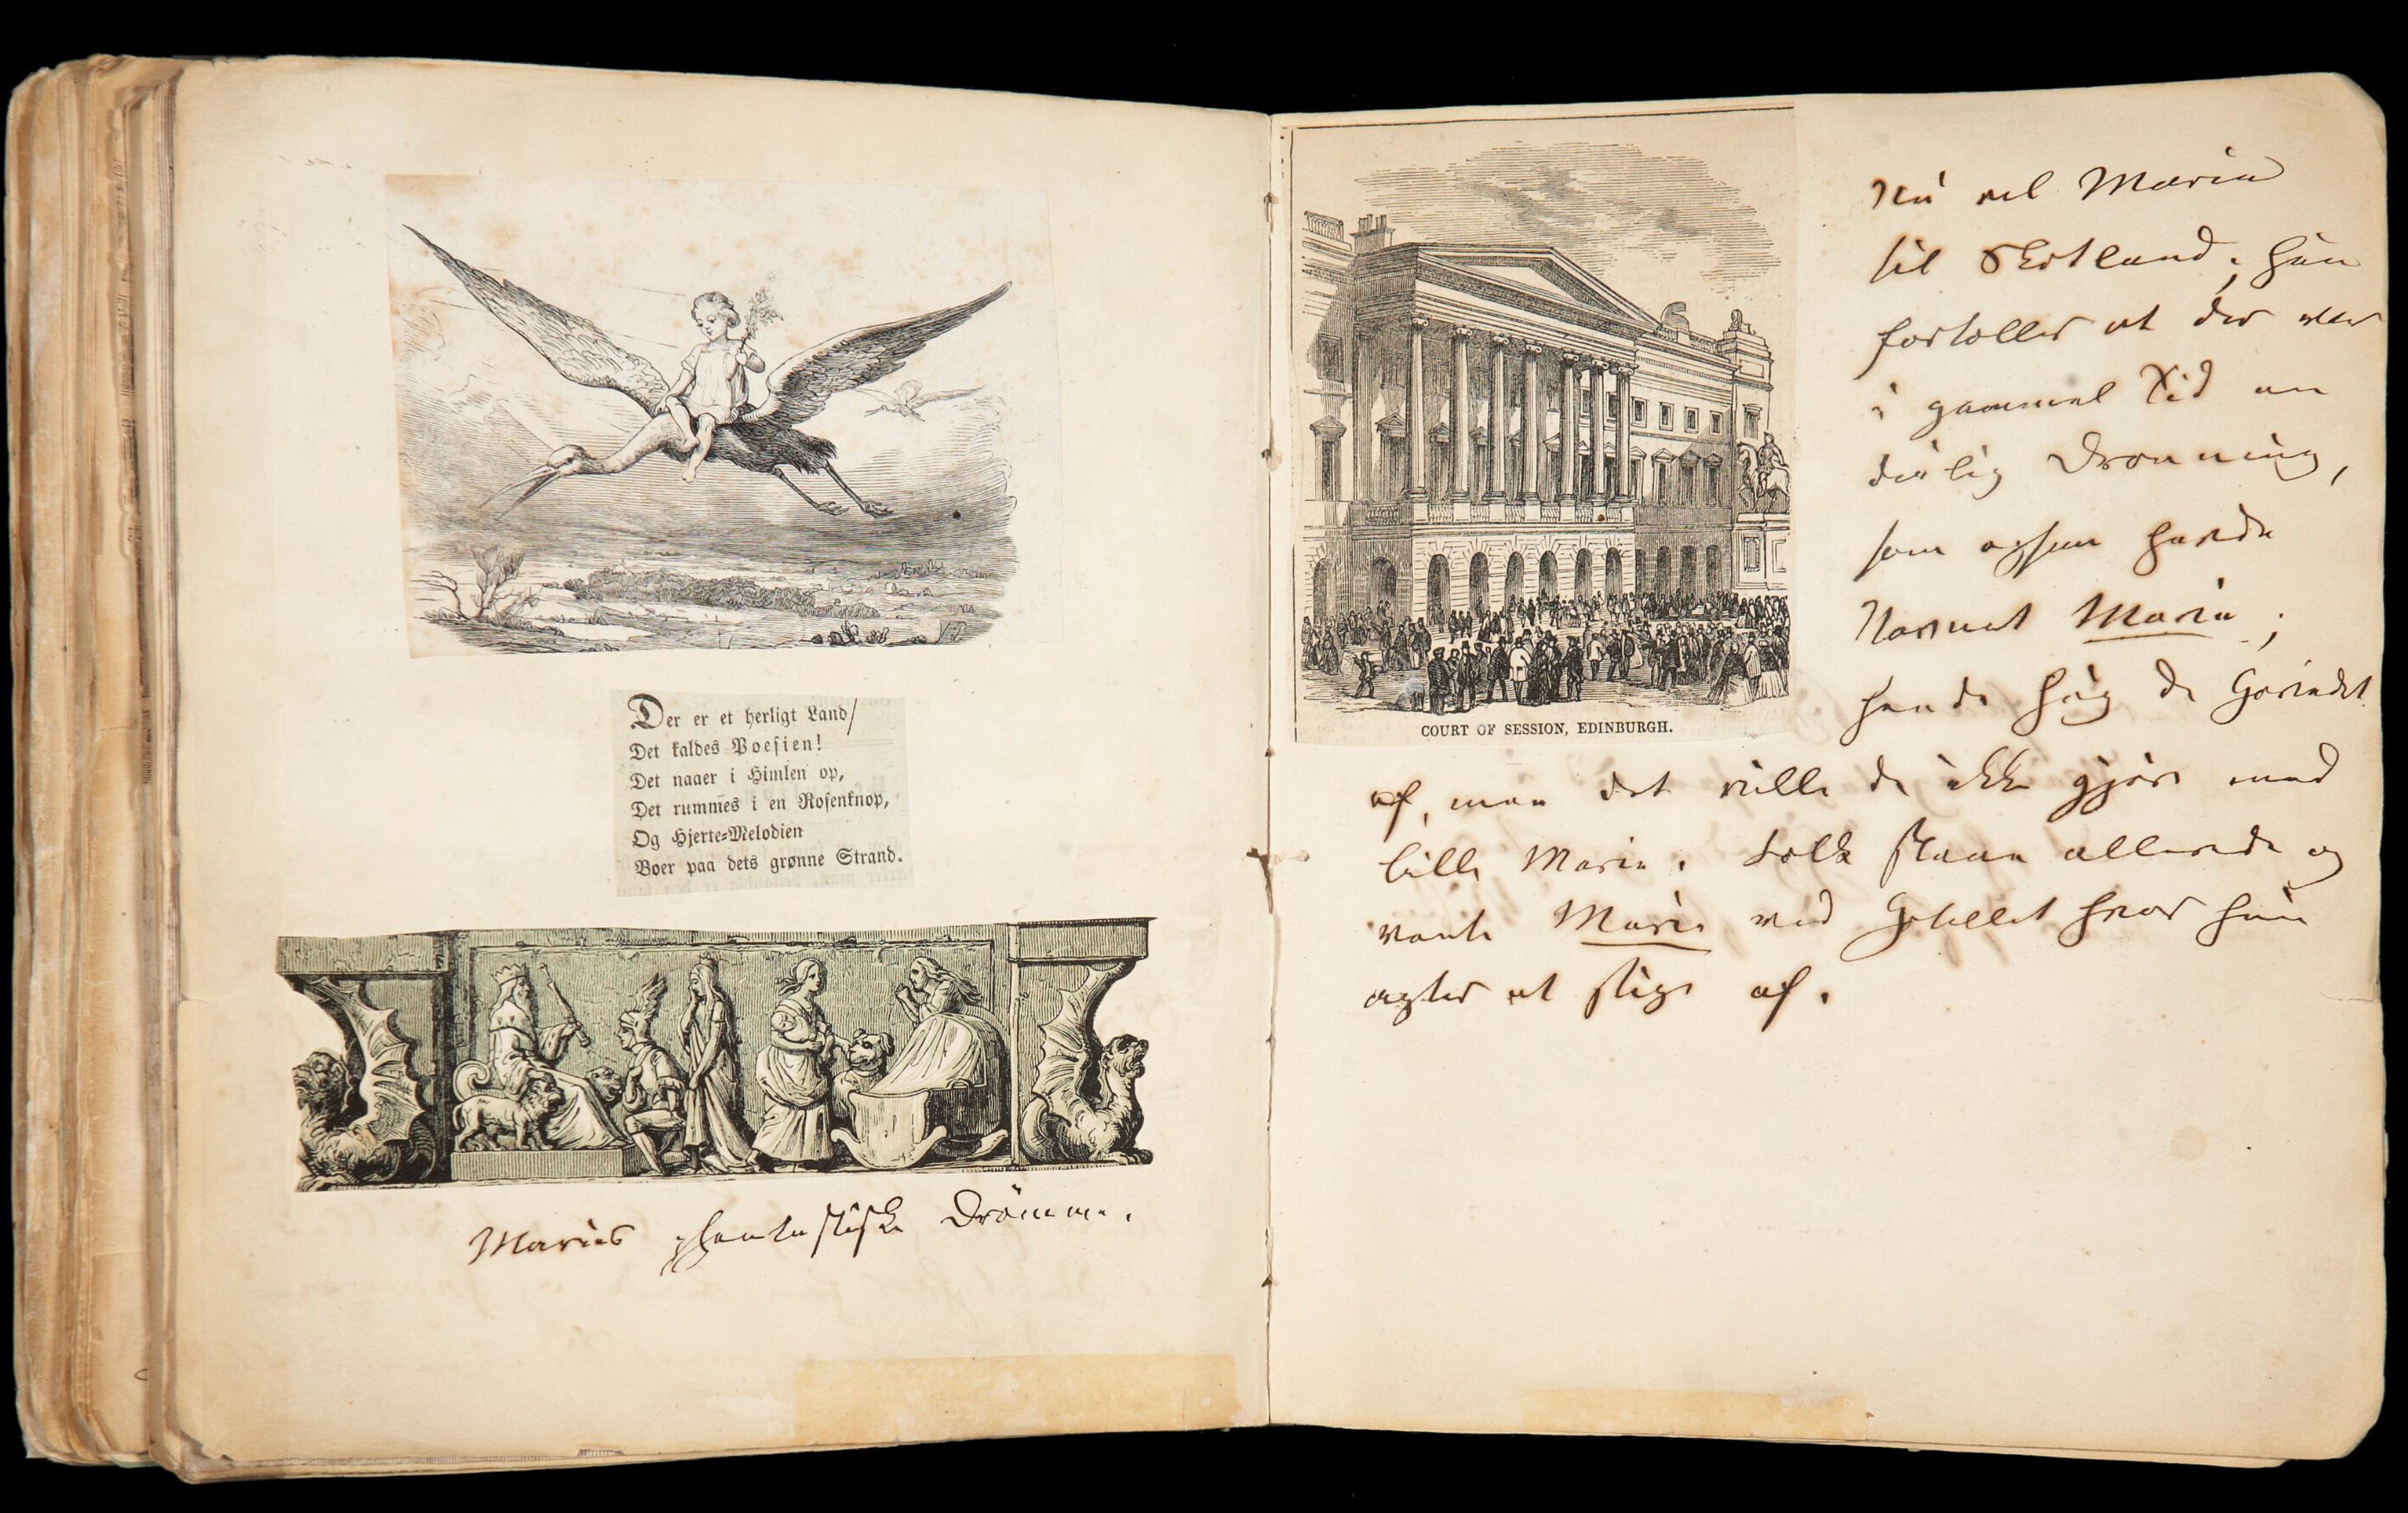 Der er et herligt Land/
Det kaldes Poesien!
Det naaer i Himlen op,
Det rummes i en Rosenknop,
Og Hjerte-Melodien
Boer paa dets grønne Strand.
Maries phantastiske Drømme.
COURT OF SESSION, EDINBURGH.
Nu vil Marie
til Skotland; hun
fortæller at der var
i gammel Tid en
deilig Dronning,
som ogsaa havde
Navnet Marie;
hende hug de Hovedet
af, men det ville de ikke gjøre med
lille Marie. Folk staae allerede og
vente Marie ved Hotellet hvor hun
agter at stige af.